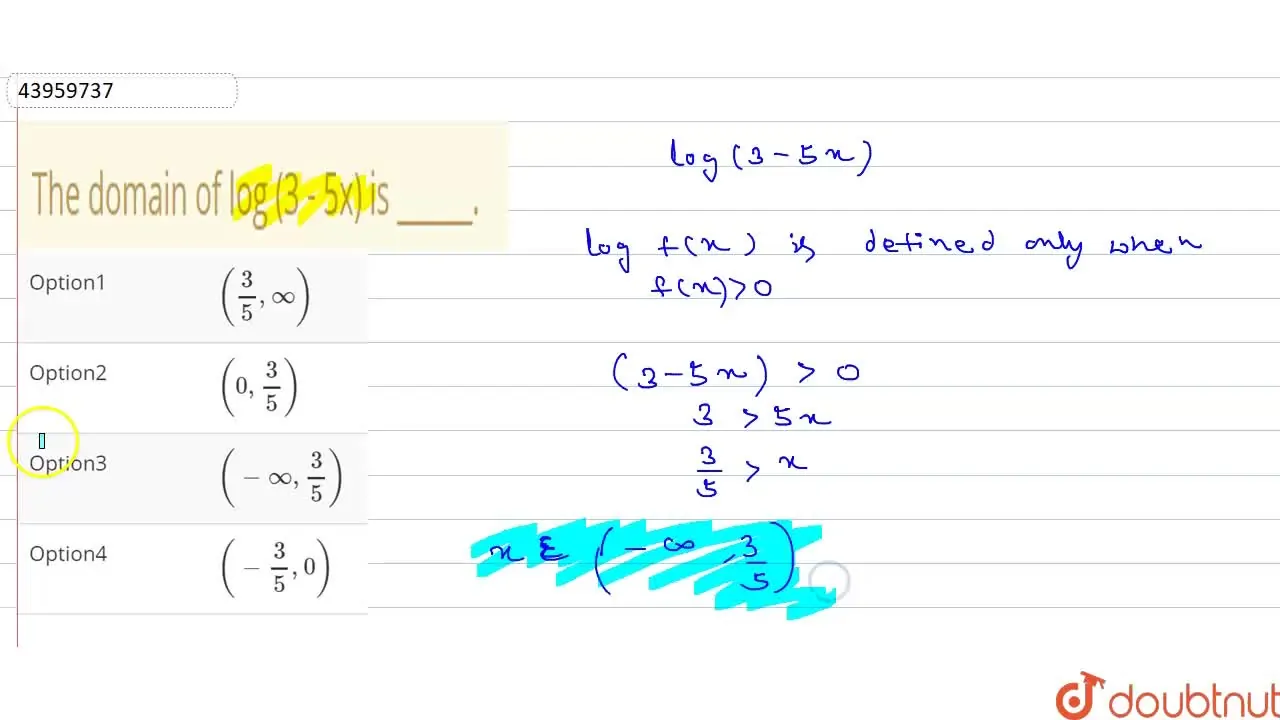 43959737
The domain of log (3 - 5x) is _____.
Option1 (3/5, ∞)
Option2 (0, 3/5)
Option3 (-∞, 3/5)
Option4 (-3/5, 0)
log (3 - 5x)
log f(x) is defined only when
f(x) > 0
(3 - 5x) > 0
3 > 5x
3/5 > x
x ∈ (-∞, 3/5)
doubtnut